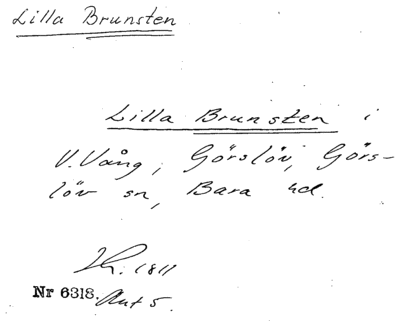 Lilla Brunsten
Lilla Brunsten i
V. Vång, Görslöv, Görs-
löv sn, Bara hd.
1811
Nr 6318. Akt 5.